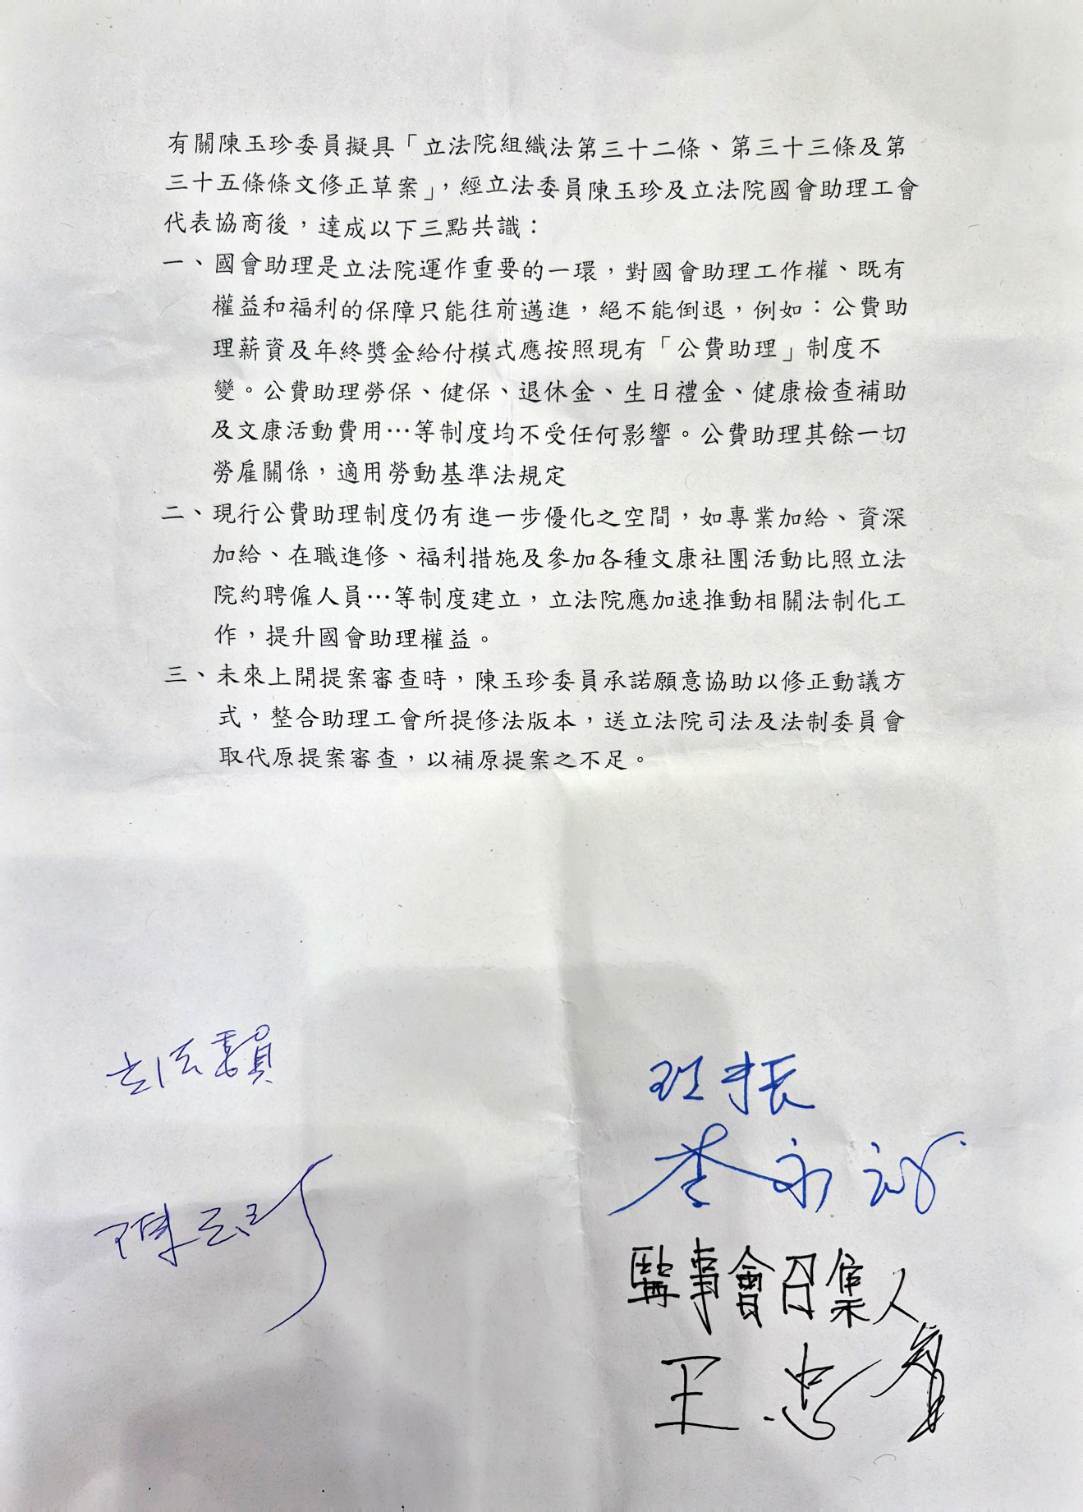 有關陳玉珍委員擬具「立法院組織法第三十二條、第三十三條及第
三十五條條文修正草案」，經立法委員陳玉珍及立法院國會助理工會
代表協商後，達成以下三點共識：
一、國會助理是立法院運作重要的一環，對國會助理工作權、既有
權益和福利的保障只能往前邁進，絕不能倒退，例如：公費助
理薪資及年終獎金給付模式應按照現有「公費助理」制度不
變。公費助理勞保、健保、退休金、生日禮金、健康檢查補助
及文康活動費用…等制度均不受任何影響。公費助理其餘一切
勞雇關係，適用勞動基準法規定
二、現行公費助理制度仍有進一步優化之空間，如專業加給、資深
加給、在職進修、福利措施及參加各種文康社團活動比照立法
院約聘僱人員…等制度建立，立法院應加速推動相關法制化工
作，提升國會助理權益。
三、未來上開提案審查時，陳玉珍委員承諾願意協助以修正動議方
式，整合助理工會所提修法版本，送立法院司法及法制委員會
取代原提案審查，以補原提案之不足。
立法委員
陳玉珍
理事長
李永裕
監事會召集人
王忠